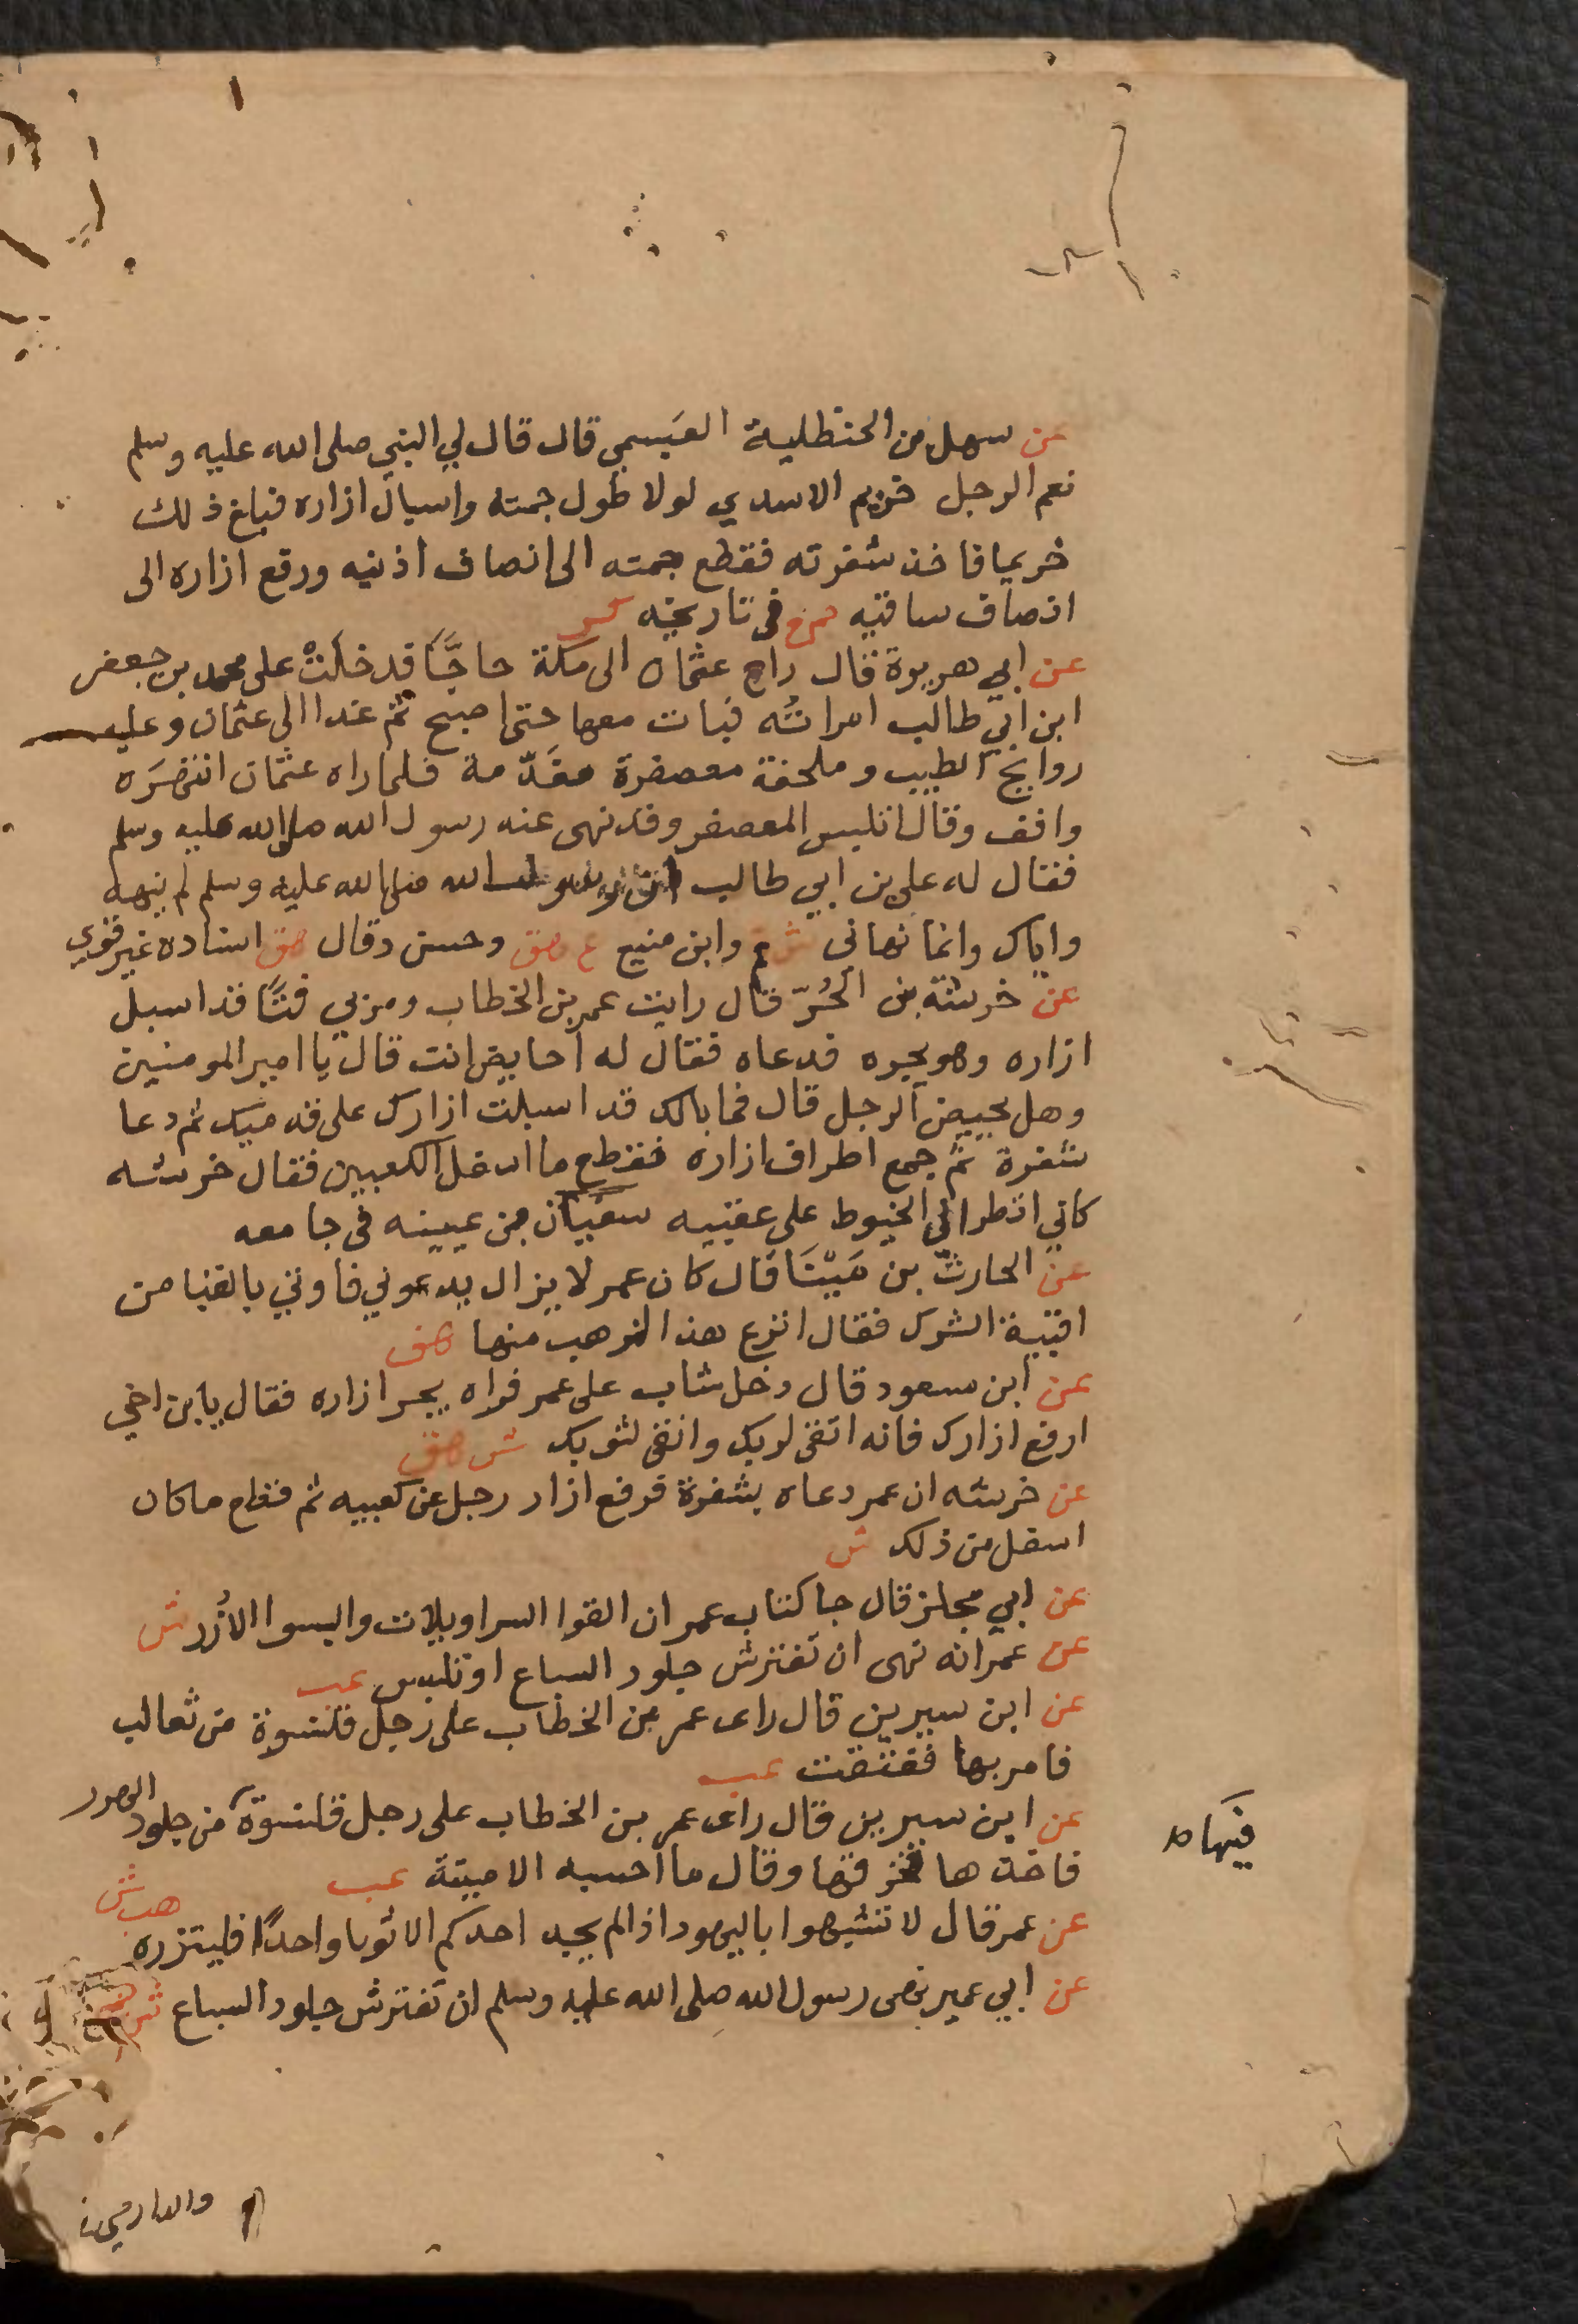 عن سهل بن الحنظلية العبسمي قال قال لي النبي صلى الله عليه وسلم
نعم الرجل خريم الاسدي لولا طول جمته واسبال ازاره فبلغ ذلك
خريما فاخذ شفرته فقطع جمته الى انصاف اذنيه ورفع ازاره الى
انصاف ساقيه في تاريخه كر
عن ابي هريرة قال راح عثمان الى مكة حاجّا فدخلت على محمد بن جعفر
ابن ابي طالب امراته فبات معها حتى اصبح ثم غدا الى عثمان وعليه
روايح الطيب وملحفة معصفرة مفدّمة فلما راه عثمان انتهره
وافف وقال اتلبس المعصفر وقد نهى عنه رسول الله صلى الله عليه وسلم
فقال له علي بن ابي طالب ان رسول الله صلى الله عليه وسلم لم ينهه
واياك وانما نهاني ش حم وابن منيع ع هق وحسن وقال هق اسناده غير قوي
عن خرشة بن الحُرّ قال رايت عمر بن الخطاب ومر بي فتًا قد اسبل
ازاره وهو يجره فدعاه فقال له احايض انت قال يا امير المومنين
وهل يحيض الرجل قال فما بالك قد اسبلت ازارك على قدميك ثم دعا
شفرة ثم جمع اطراف ازاره فقطع ما اسفل الكعبين فقال خرشه
كاني انظر الى الخيوط على عقبيه سفيان بن عيينه في جامعه
عن الحارث بن مَيْنَا قال كان عمر لا يزال يدعوني فاوتي بالقبا من
اقبية الشرك فقال انزع هذا الذهب منها هق
عن ابن سعود قال دخل شاب على عمر فراه يجر ازاره فقال يابن اخي
ارفع ازارك فانه اتقى لربك وانقى لثوبك ش هق
عن خرشه ان عمر دعاه بشفرة فرفع ازار رجل عن كعبيه ثم فقطع ما كان
اسفل من ذلك ش
عن ابي مجلز قال جا كتاب عمر ان القوا السراويلات والبسوا الأزر ش
عن عمر انه نهى ان تفترش جلود السباع او تلبس عب
عن ابن سيرين قال راى عمر بن الخطاب على رجل قلنسوة من ثعالب
فامر بها ففتقت عب
عن ابن سيرين قال راى عمر بن الخطاب على رجل قلنسوة من جلود الهرر
فيها
فاخذها فخرقها وقال ما احسبه الا ميتة عب
عن عمر قال لا تشبهوا باليهود اذا لم يجد احدكم الا ثوبا واحدًا فليتزره هب ش
عن ابي عمير نهى رسول الله صلى الله عليه وسلم ان تفترش جلود السباع
والدارمي